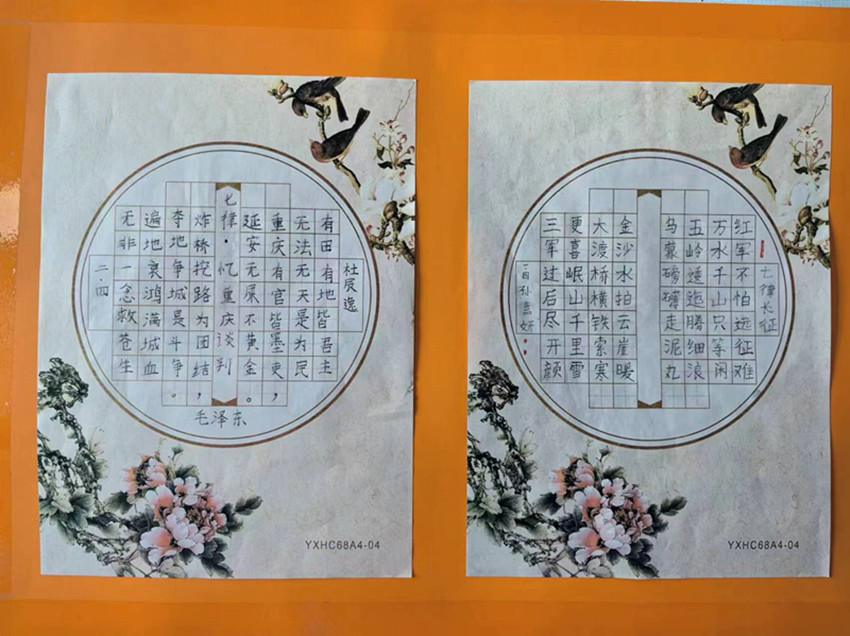 杜辰逸
有田有地皆吾主
无法无天是为民
重庆有官皆墨吏，
延安无屎不黄金。
七律·忆重庆谈判
炸桥挖路为团结，
夺地争城是斗争。
遍地哀鸿满城血
无非一念救苍生
二.四
毛泽东
YXHC68A4-04
七律长征
红军不怕远征难
万水千山只等闲
五岭逶迤腾细浪
乌蒙磅礴走泥丸
金沙水拍云崖暖
大渡桥横铁索寒
更喜岷山千里雪
三军过后尽开颜
孙妍
YXHC68A4-04